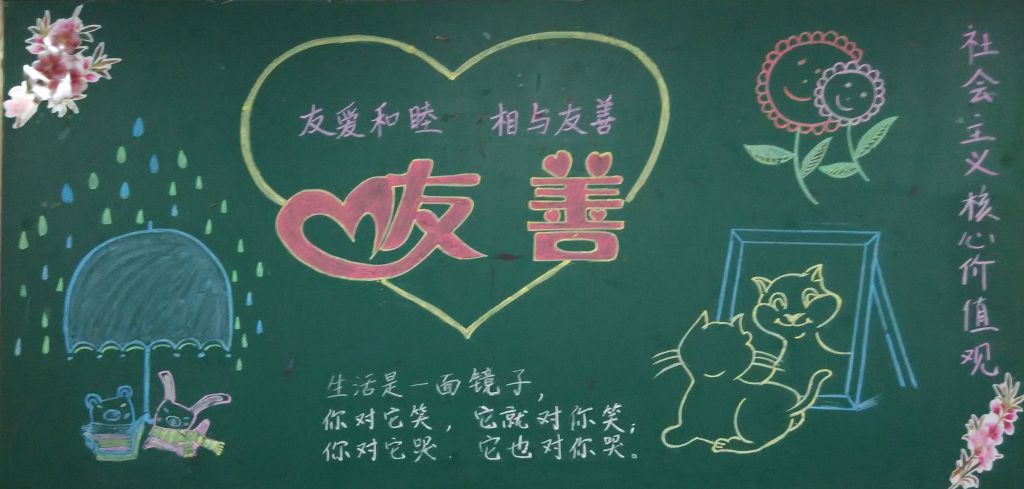 友爱和睦 相与友善
友善
生活是一面镜子，
你对它笑，它就对你笑；
你对它哭．它也对你哭。
社会主义核心价值观